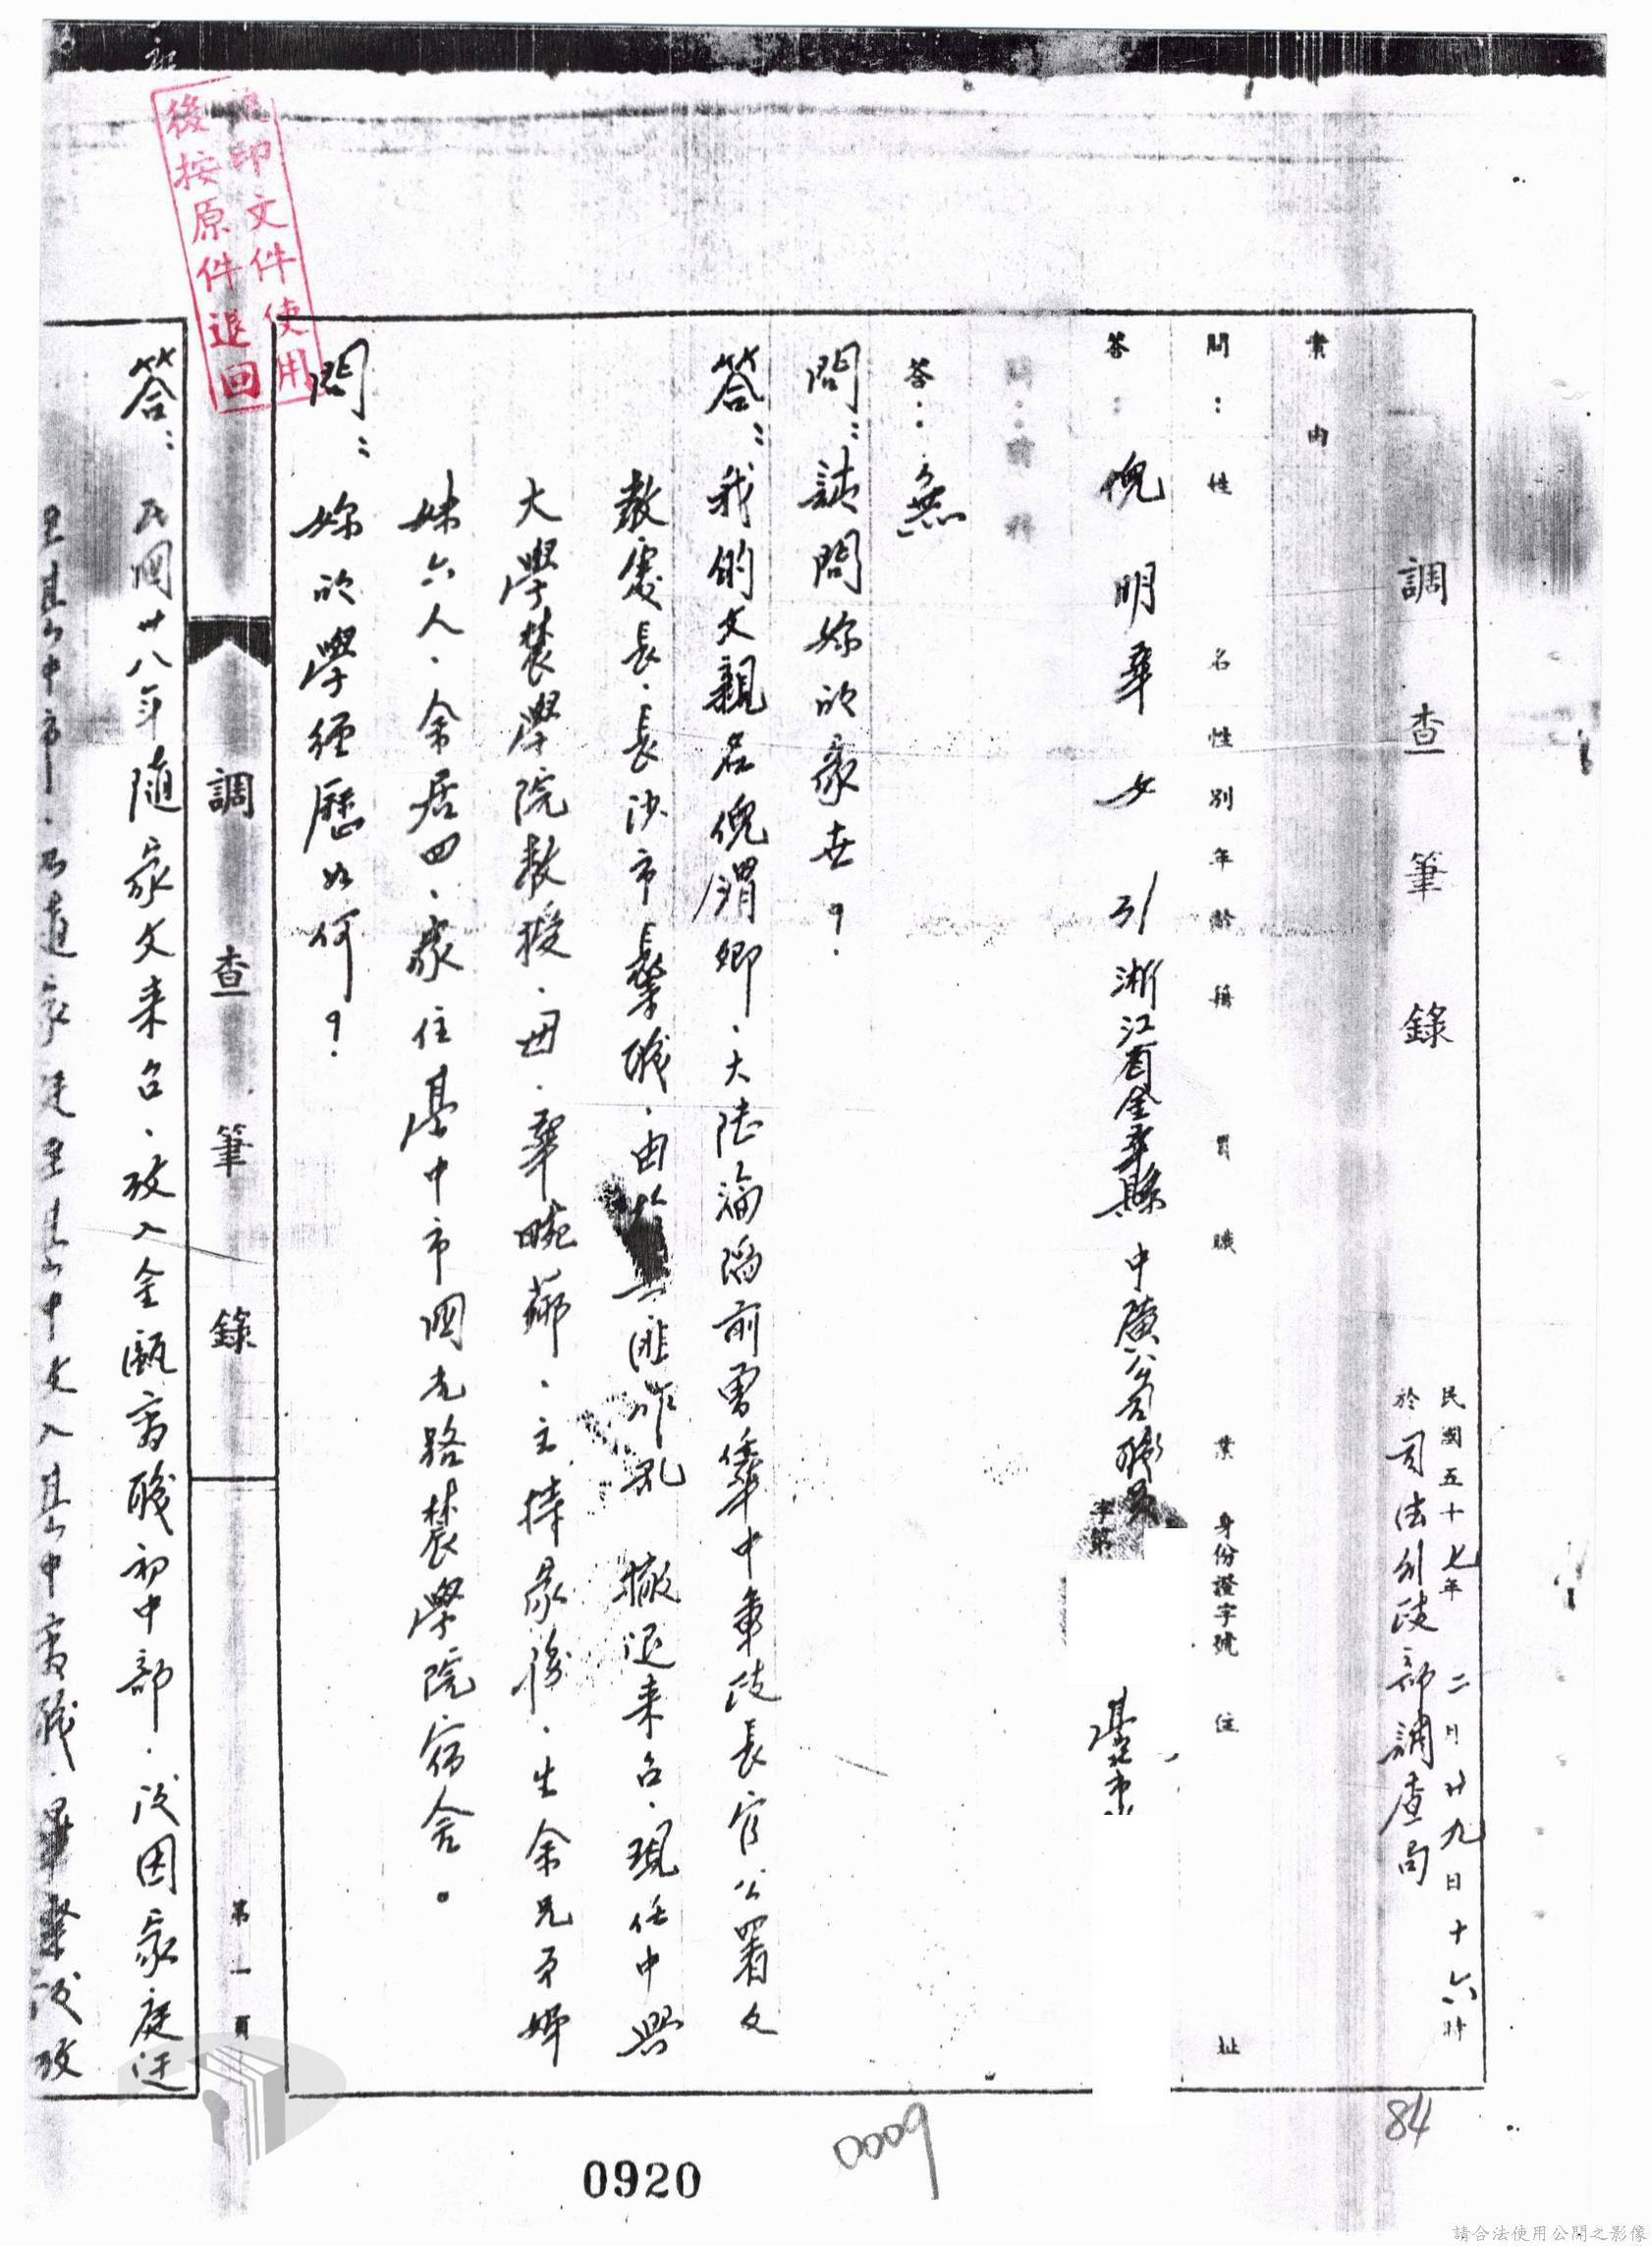 調查筆錄
民國五十七年二月廿九日十六時
於司法行政部調查局
案由
問：姓名性別年齡籍貫職業身份證字號住址
答：倪明華 女 31 浙江省金華縣 中廣公司職員 字第 臺北市
問：前科
答：無
問：請問妳的家世？
答：我的父親名倪渭卿、大陸淪陷前曾任華中軍政長官公署文
教處長、長沙市長等職、由於共匪作亂 撤退來台、現任中興
大學農學院教授、母、華畹蓀、主持家務、生余兄弟姊
妹六人、余居四、家住臺中市國光路農學院宿舍。
問：妳的學經歷如何？
調查筆錄
第一頁
答：民國卅八年隨家父來台、考入金甌商職初中部、後因家庭迁
至臺中市、
臺中商職、畢業後考
影印文件使用
後按原件退回
84
0009
0920
請合法使用公開之影像